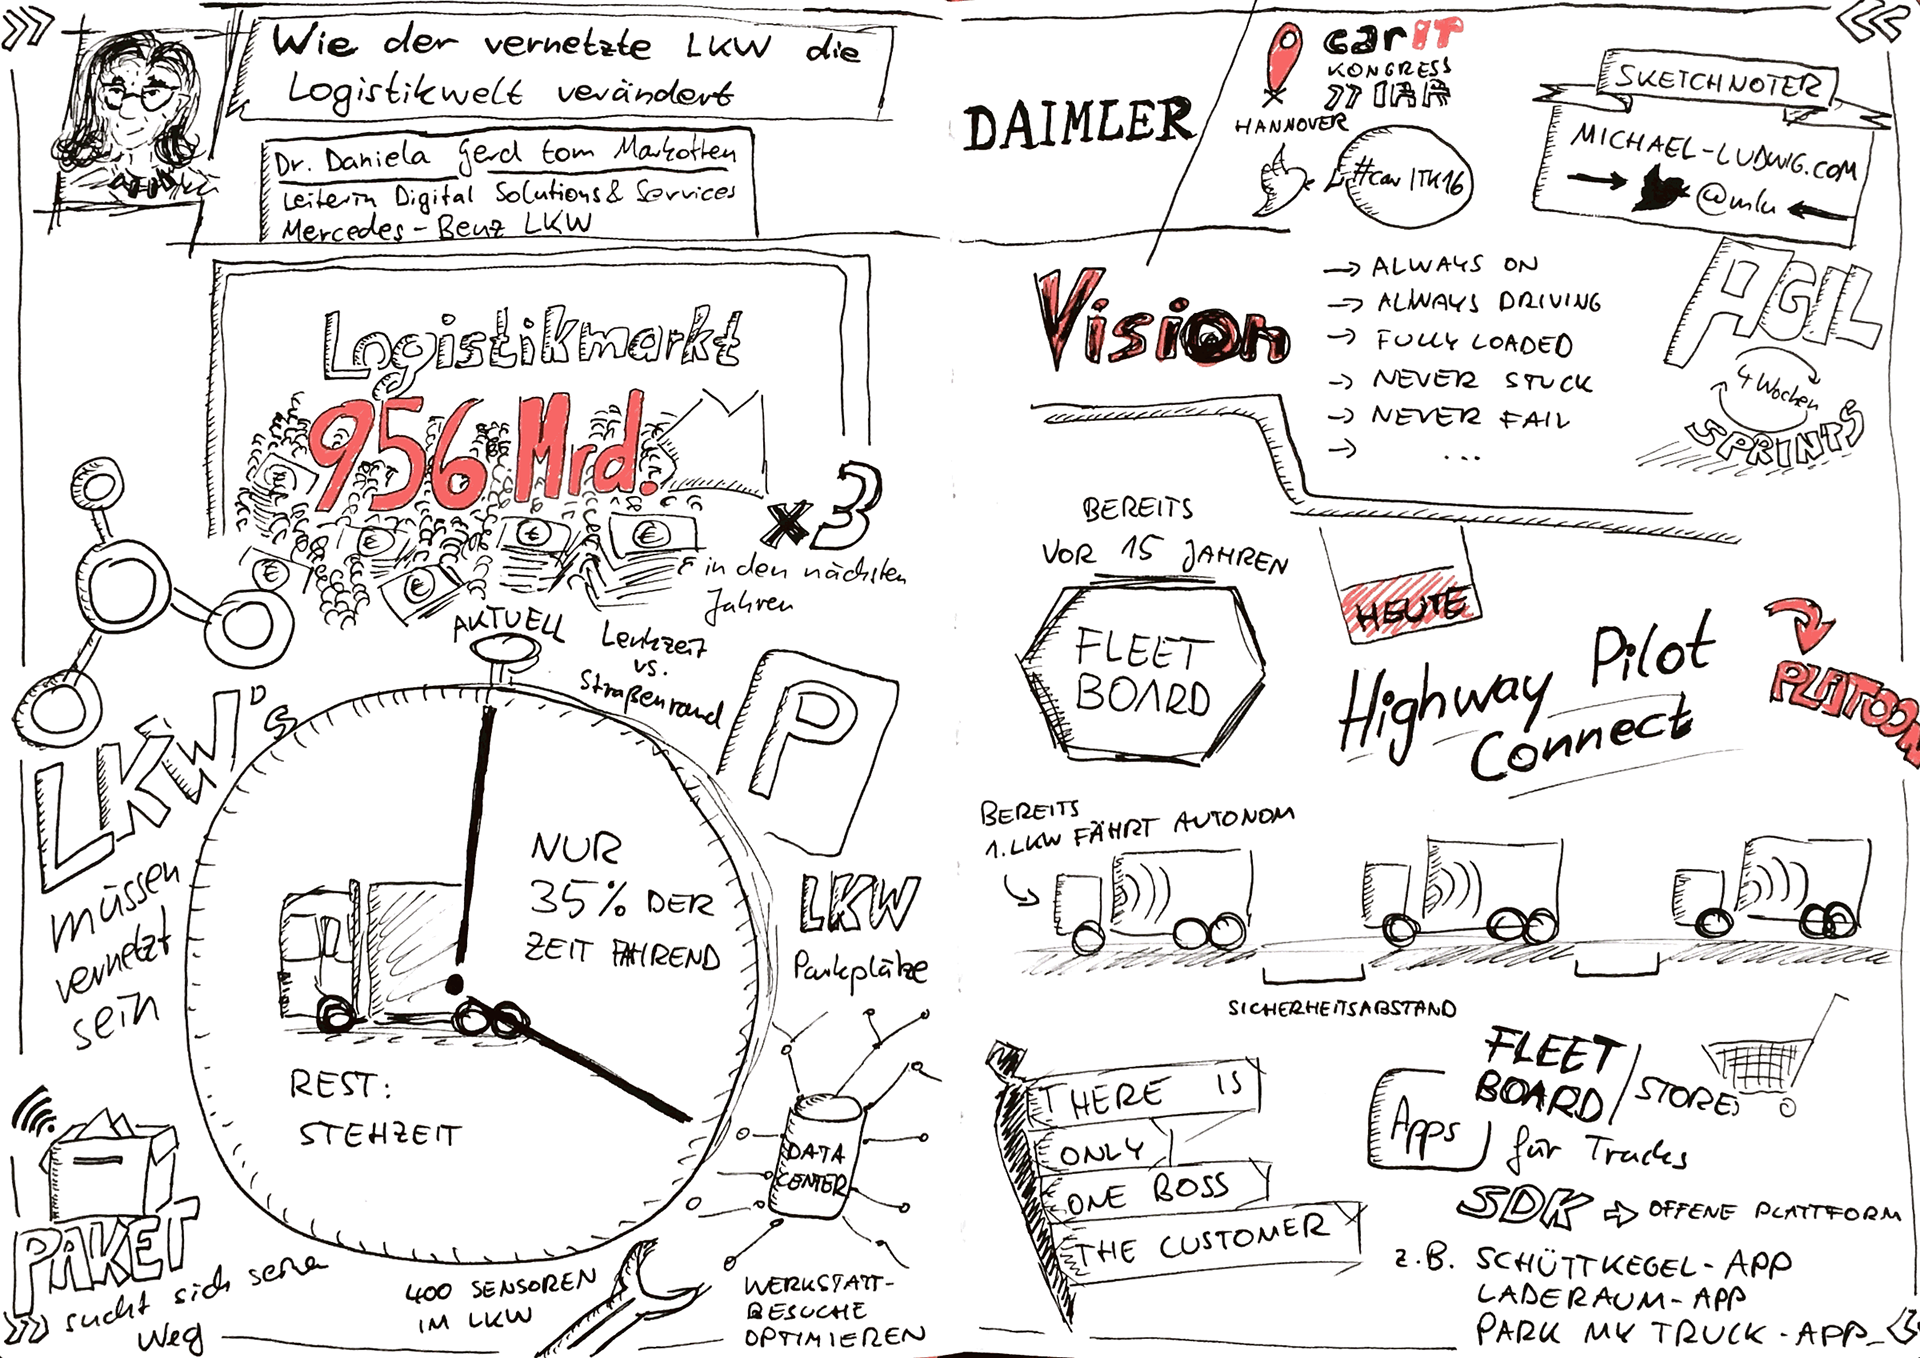 Wie der vernetzte LKW die
Logistikwelt verändert
Dr. Daniela Gerd tom Markotten
Leiterin Digital Solutions & Services
Mercedes-Benz LKW
Logistikmarkt
956 Mrd.
x3
in den nächsten
Jahren
AKTUELL
Lenkzeit
vs.
Straßenrand
P
LKW
Parkplätze
LKW's
müssen
vernetzt
sein
NUR
35% DER
ZEIT FAHREND
REST:
STEHZEIT
DATA
CENTER
PAKET
sucht sich seinen
Weg
400 SENSOREN
IM LKW
WERKSTATT-
BESUCHE
OPTIMIEREN
DAIMLER
carIT
KONGRESS
IAA
HANNOVER
#carITK16
SKETCHNOTER
MICHAEL-LUDWIG.COM
@mlu
Vision
→ ALWAYS ON
→ ALWAYS DRIVING
→ FULLY LOADED
→ NEVER STUCK
→ NEVER FAIL
→ ...
AGIL
4 Wochen
SPRINTS
BEREITS
VOR 15 JAHREN
FLEET
BOARD
HEUTE
Highway Pilot
Connect
PLATOON
BEREITS
1. LKW FÄHRT AUTONOM
SICHERHEITSABSTAND
THERE IS
ONLY
ONE BOSS
THE CUSTOMER
FLEET
BOARD/STORE
Apps
für Trucks
SDK ⇨ OFFENE PLATTFORM
z.B. SCHÜTTKEGEL-APP
LADERAUM-APP
PARK MY TRUCK-APP